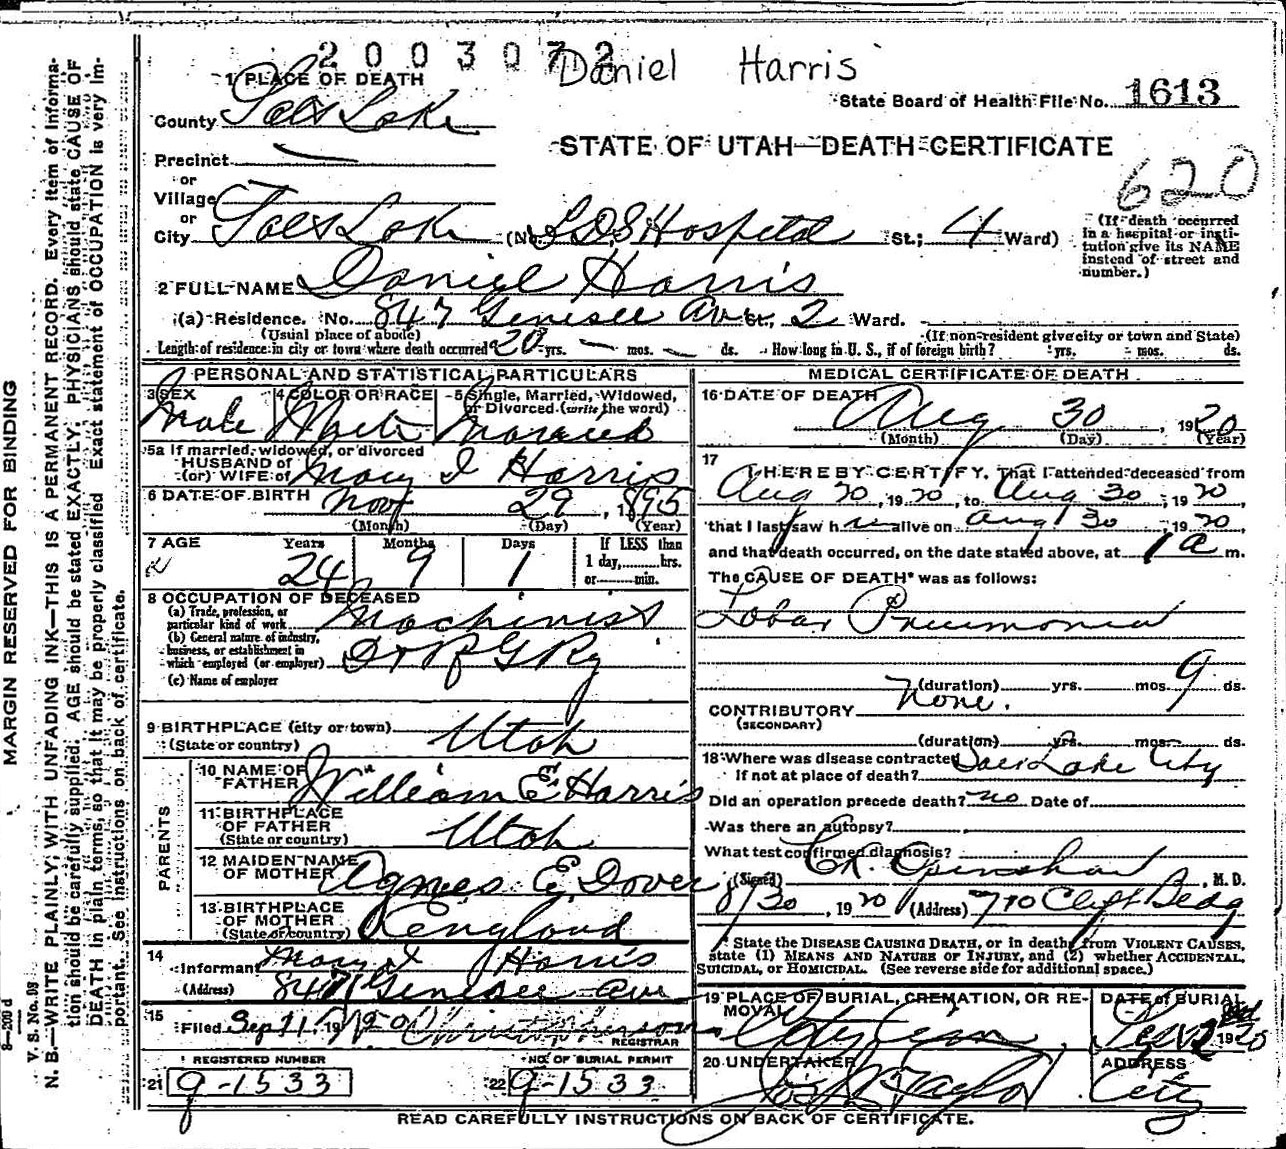 2003072
Daniel Harris
1 PLACE OF DEATH
State Board of Health File No. 1613
County Salt Lake
STATE OF UTAH—DEATH CERTIFICATE
620
Precinct
or
Village
or
City Salt Lake (No. L.D.S Hospital St.; 4 Ward)
(If death occurred in a hospital or institution give its NAME instead of street and number.)
2 FULL NAME Daniel Harris
(a) Residence. No. 847 Genesee Ave St., 2 Ward.
(Usual place of abode) (If non-resident give city or town and State)
Length of residence in city or town where death occurred 20 yrs. — mos. — ds. How long in U. S., if of foreign birth? yrs. mos. ds.
PERSONAL AND STATISTICAL PARTICULARS
3 SEX Male
4 COLOR OR RACE White
5 Single, Married, Widowed, or Divorced (write the word) Married
5a If married, widowed, or divorced
HUSBAND of
(or) WIFE of Mary I Harris
6 DATE OF BIRTH Nov 29, 1895
(Month) (Day) (Year)
7 AGE Years 24 Months 9 Days 1 If LESS than 1 day, hrs. or min.
8 OCCUPATION OF DECEASED
(a) Trade, profession, or particular kind of work Machinist
(b) General nature of industry, business, or establishment in which employed (or employer) D & R G Ry
(c) Name of employer
9 BIRTHPLACE (city or town)
(State or country) Utah
PARENTS
10 NAME OF FATHER William E Harris
11 BIRTHPLACE OF FATHER
(State or country) Utah
12 MAIDEN NAME OF MOTHER Agnes E. Dover
13 BIRTHPLACE OF MOTHER
(State or country) England
14 Informant Mary I Harris
(Address) 847 Genesee Ave
15 Filed Sep 1, 19
REGISTRAR
REGISTERED NUMBER
21 9-1533
NO. OF BURIAL PERMIT
22 9-1533
MEDICAL CERTIFICATE OF DEATH
16 DATE OF DEATH Aug 30, 1920
(Month) (Day) (Year)
17 I HEREBY CERTIFY, That I attended deceased from
Aug 20, 1920, to Aug 30, 1920,
that I last saw him alive on Aug 30, 1920,
and that death occurred, on the date stated above, at 1 a m.
The CAUSE OF DEATH* was as follows:
Lobar Pneumonia
(duration) yrs. mos. 9 ds.
CONTRIBUTORY None.
(SECONDARY)
(duration) yrs. mos. ds.
18 Where was disease contracted
If not at place of death? Salt Lake City
Did an operation precede death? no Date of
Was there an autopsy?
What test confirmed diagnosis?
(Signed) M. D.
8/30, 1920 (Address) 710 Clift Bldg
* State the DISEASE CAUSING DEATH, or in deaths from VIOLENT CAUSES, state (1) MEANS AND NATURE OF INJURY, and (2) whether ACCIDENTAL, SUICIDAL, or HOMICIDAL. (See reverse side for additional space.)
19 PLACE OF BURIAL, CREMATION, OR REMOVAL City Cem
DATE of BURIAL Sep 2 1920
20 UNDERTAKER Jos Wm Taylor
ADDRESS City
READ CAREFULLY INSTRUCTIONS ON BACK OF CERTIFICATE.
MARGIN RESERVED FOR BINDING
V. S. No. 98
N. B.—WRITE PLAINLY, WITH UNFADING INK—THIS IS A PERMANENT RECORD. Every item of information should be carefully supplied. AGE should be stated EXACTLY. PHYSICIANS should state CAUSE OF DEATH in plain terms, so that it may be properly classified. Exact statement of OCCUPATION is very important. See instructions on back of certificate.